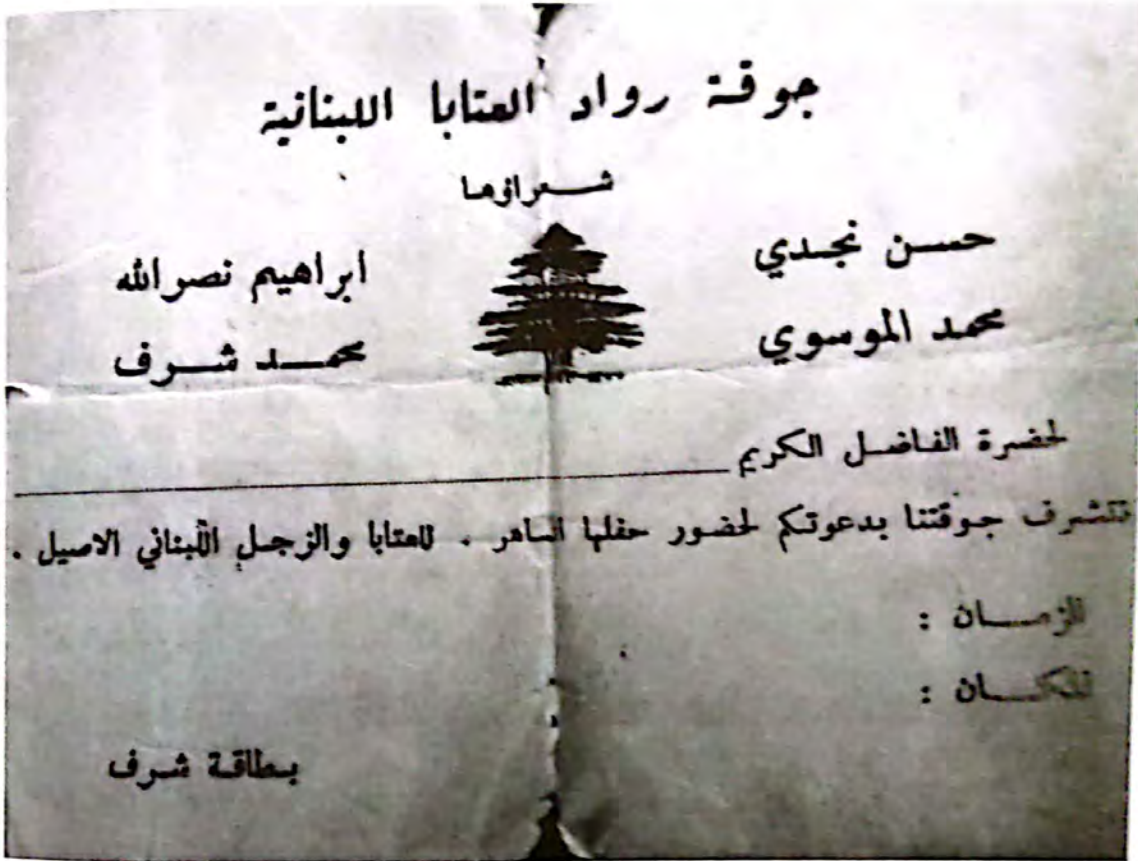 جوقة رواد العتابا اللبنانية
شعراؤها
حسن نجدي ابراهيم نصرالله
محمد الموسوي محمد شرف
لحضرة الفاضل الكريم
تتشرف جوقتنا بدعوتكم لحضور حفلها الساهر . للعتابا والزجل اللبناني الاصيل .
الزمان :
المكان :
بطاقة شرف